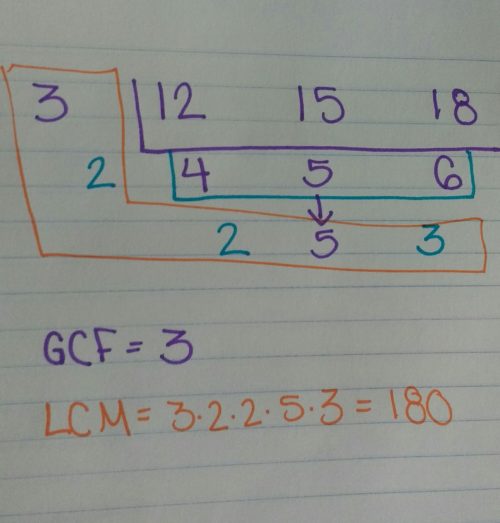 3 12 15 18
2 4 5 6
2 5 3
GCF = 3
LCM = 3·2·2·5·3 = 180